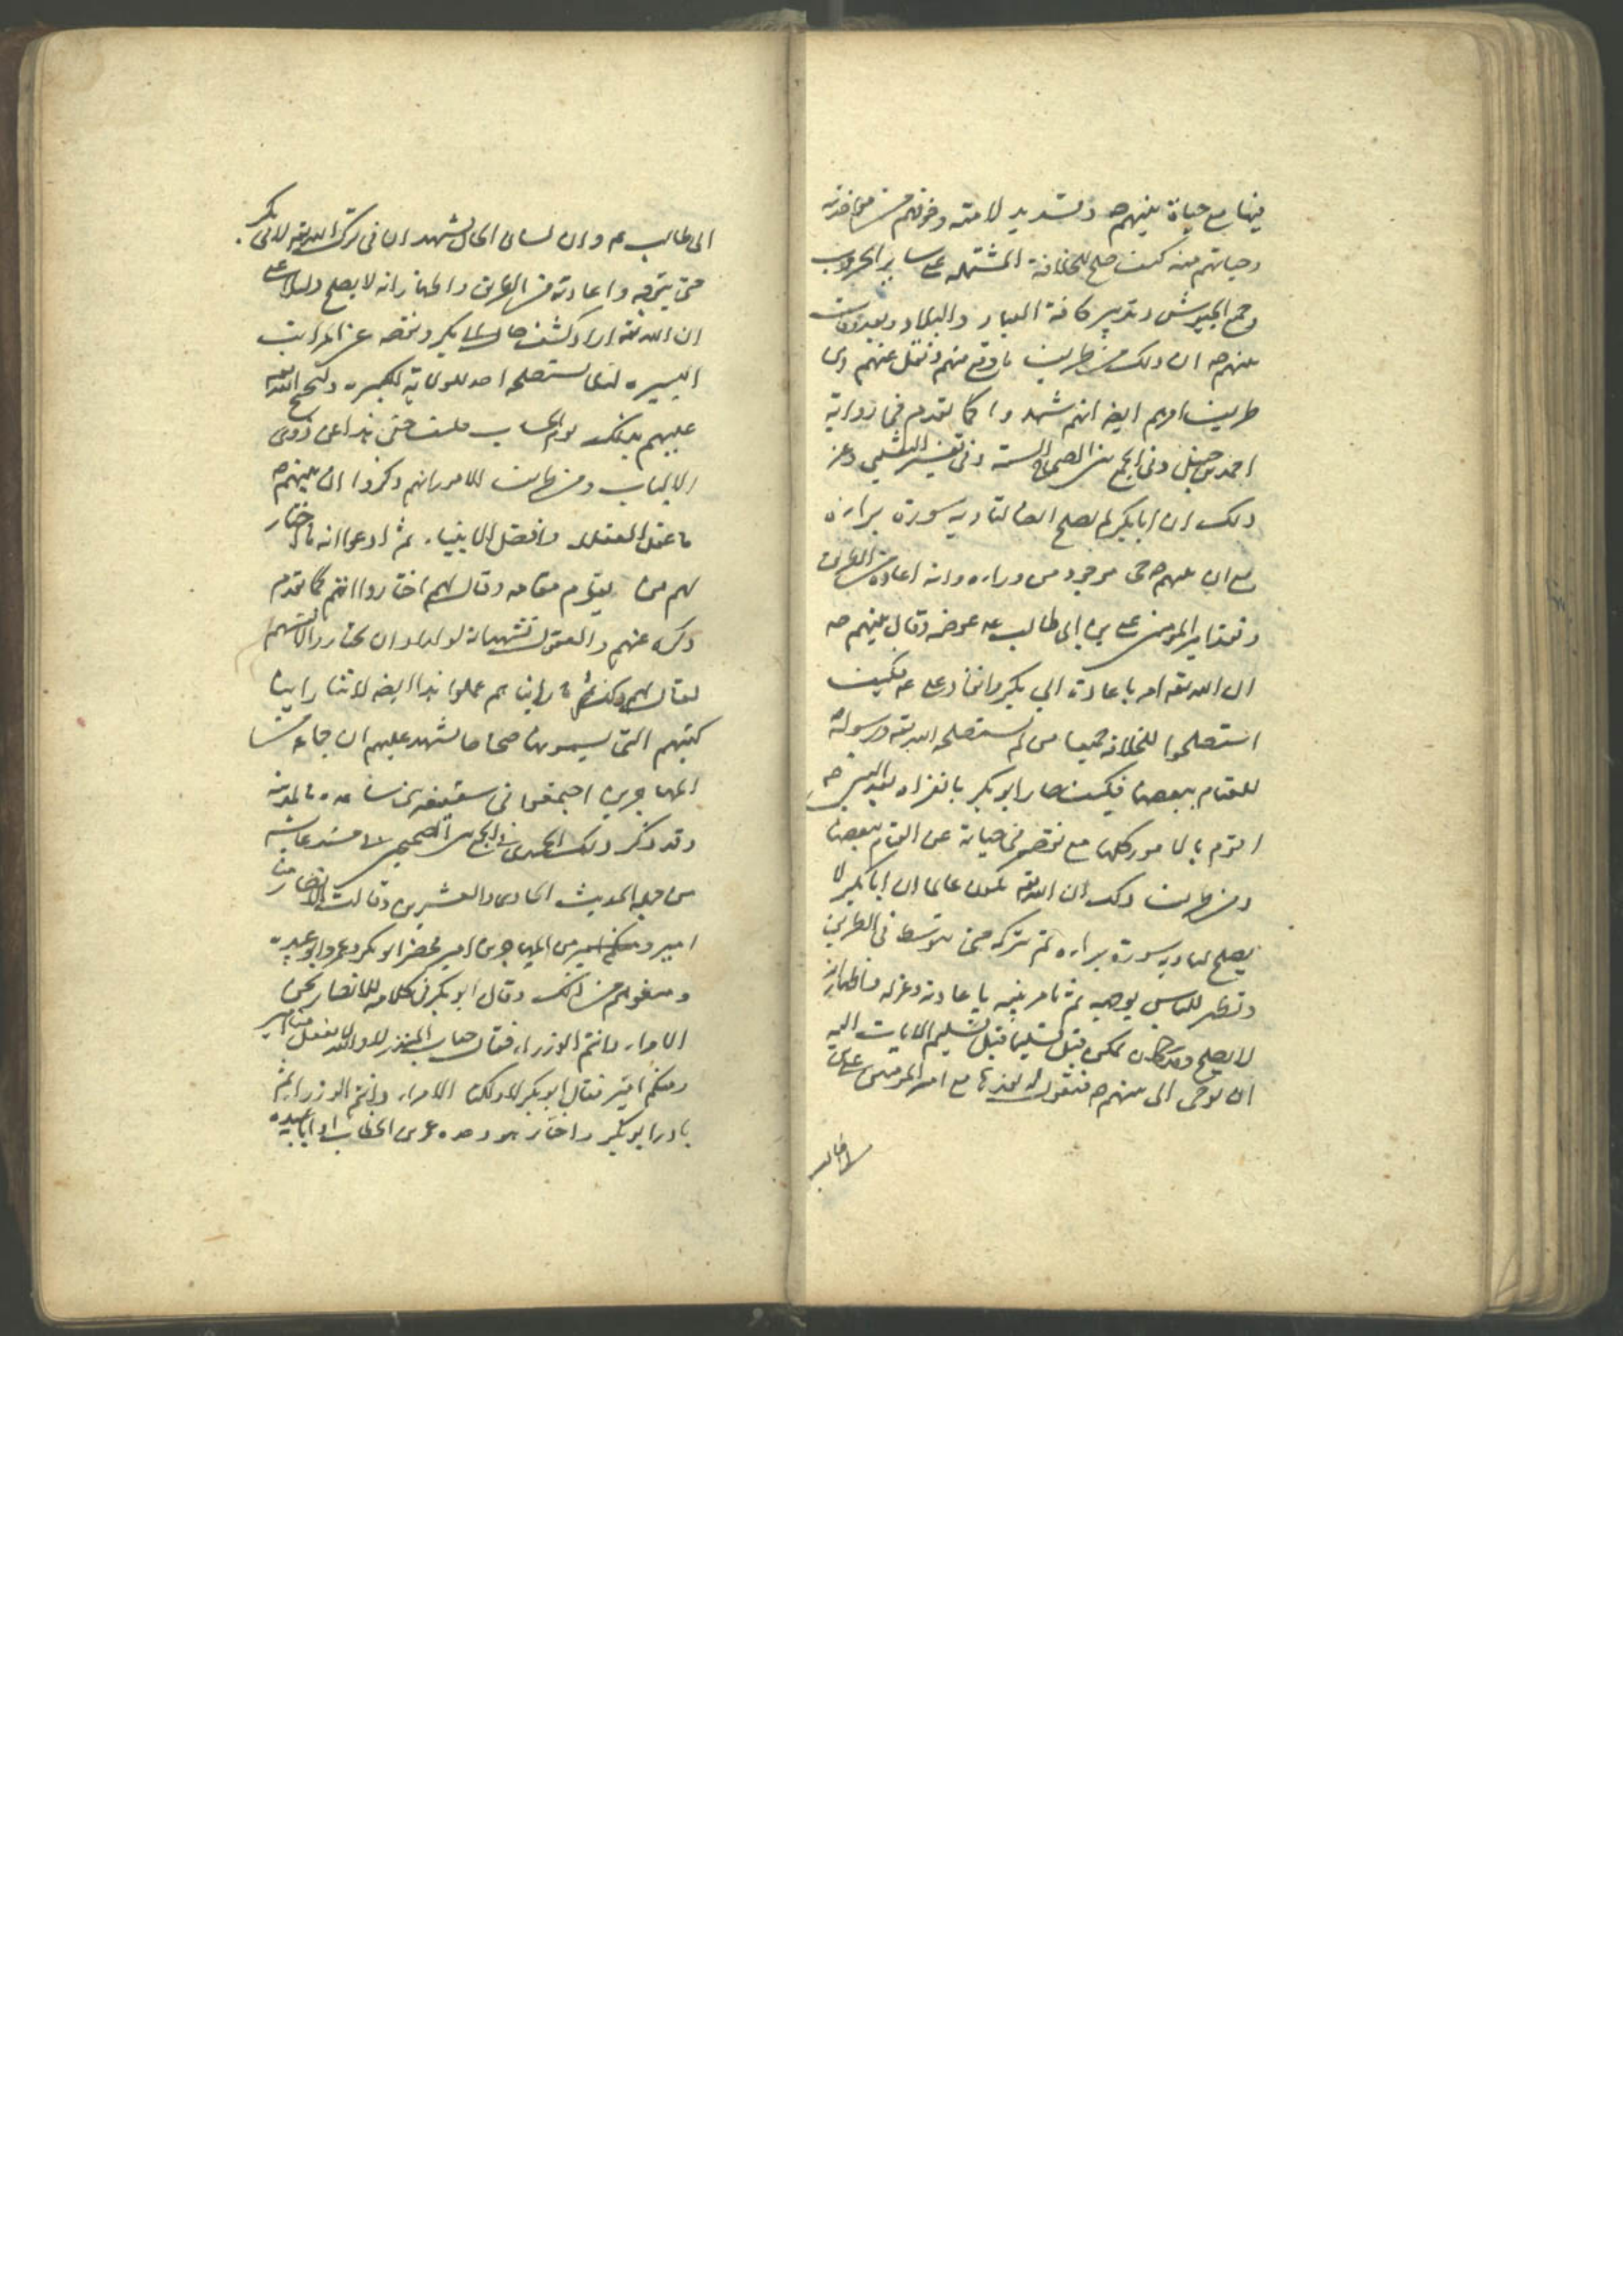 فيها مع حياة نبيهم ص وتشديد لامته وخوفهم من مخالفته
وحيائهم منه كيف صلح للخلافة المشتملة على ساير الحروب
وجمع الجيوش وتدبير كافة العباد والبلاد وبعد وفات
نبيهم ص ان ذلك من طريف ما وقع منهم ونقل عنهم ومن
طريف امرهم ايضا انهم شهدوا كما تقدم في رواية
احمد بن حنبل وفي الجمع بين الصحاح الستة وفي تفسير الثعلبي وغير
ذلك ان ابا بكر لم يصلح لتادية سورة براءة
مع ان نبيهم ص حي موجود من وراءه وانه اعاده من الطريق
ونفذ امير المؤمنين علي بن ابي طالب ع عوضه وقال نبيهم ص
ان الله تعه امره باعادة ابي بكر وانفاذ علي ع فكيف
استصلحوا للخلافة جميعا من لم يستصلحه الله تعه ورسوله
للقيام ببعضها فكيف صار ابو بكر بانفراده بعد النبي ص
اقوم بالامور كلها مع نقصه في حياته عن القيام ببعضها
ومن طريف ذلك ان الله تعه يكون عالما ان ابا بكر لا
يصلح لتادية سورة براءة ثم يتركه حتى يتوسط في الطريق
ويظهر للناس توجهه ثم يامر نبيه باعادته وعزله واظهار انه
لا يصلح وقد كان يمكن قبل تسليم الايات اليه
ان يوحي الى نبيهم ص فيقول له نفذها مع امير المؤمنين علي بن
ابي طالب
ابي طالب ع وان لسان الحال يشهد ان في ترك الله تعه لابي بكر
حتى يتوجه واعادته من الطريق واظهار انه لا يصلح دليلا على
ان الله تعه اراد كشف حال ابي بكر ونقصه عن المراتب
اليسيرة لئلا يستصلحه احد للولاية الكبيرة وليحتج الله تعه
عليهم بذلك يوم الحساب فليت خفي هذا عن ذوي
الالباب ومن طريف الامور انهم ذكروا ان نبيهم ص
اعقل العقلاء وافضل الانبياء ثم ادعوا انه ما اختار
لهم من يقوم مقامه وقال لهم اختاروا انتم كما تقدم
ذكره عنهم والعقول تشهد انه لو اراد ان يختاروا لانفسهم
لقال لهم ذلك وما رايناهم عملوا بهذا ايضا لاننا راينا
كتبهم التي يسمونها صحاحا تشهد عليهم ان جماعة من
المهاجرين اجتمعوا في سقيفة بني ساعدة بالمدينة
وقد ذكر ذلك الحميدي في الجمع بين الصحيحين في مسند عايشة
من جملة الحديث الحادي والعشرين وقالت الانصار منا
امير ومنكم امير من المهاجرين امير فحضر ابو بكر وعمر وابو عبيدة
ومنعوهم من ذلك وقال ابو بكر في كلامه للانصار نحن
الامراء وانتم الوزراء فقال حباب بن المنذر لا والله لا نفعل منا امير
ومنكم امير فقال ابو بكر لا ولكنا الامراء وانتم الوزراء ثم
بادر ابو بكر واختار هو وحده عمر بن الخطاب او ابا عبيدة